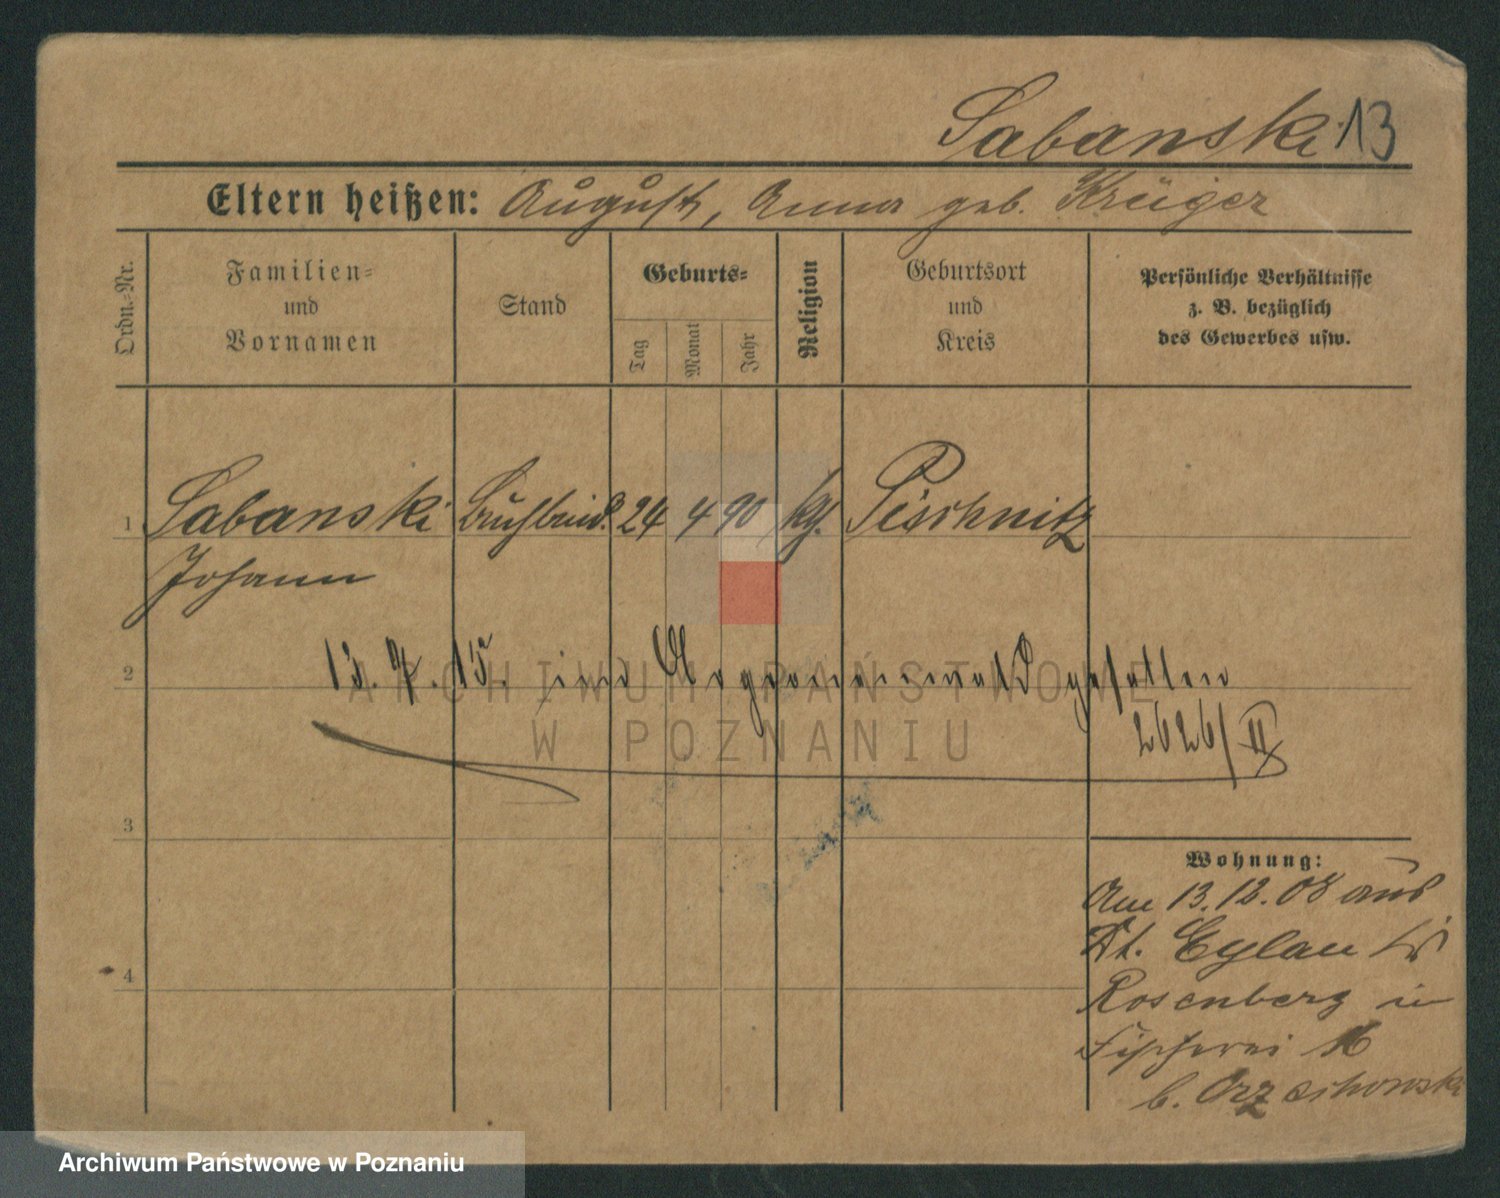 Sabanski 13
Eltern heißen: August, Anna geb. Krüger
Ordn.-Nr.
Familien-
und
Vornamen
Stand
Geburts-
Tag
Monat
Jahr
Religion
Geburtsort
und
Kreis
Persönliche Verhältnisse
z. B. bezüglich
des Gewerbes usw.
1 Sabanski Buchbind. 24 4 90 kth. Pischnitz
Johann
2 13. 7. 15. im Argonnenwald gefallen
2626/II
ARCHIWUM PAŃSTWOWE
W POZNANIU
3
Wohnung:
Am 13.12.08 aus
Dt. Eylau Krs
4
Rosenberg in
Fischerei 16
b. Orzechowski
Archiwum Państwowe w Poznaniu